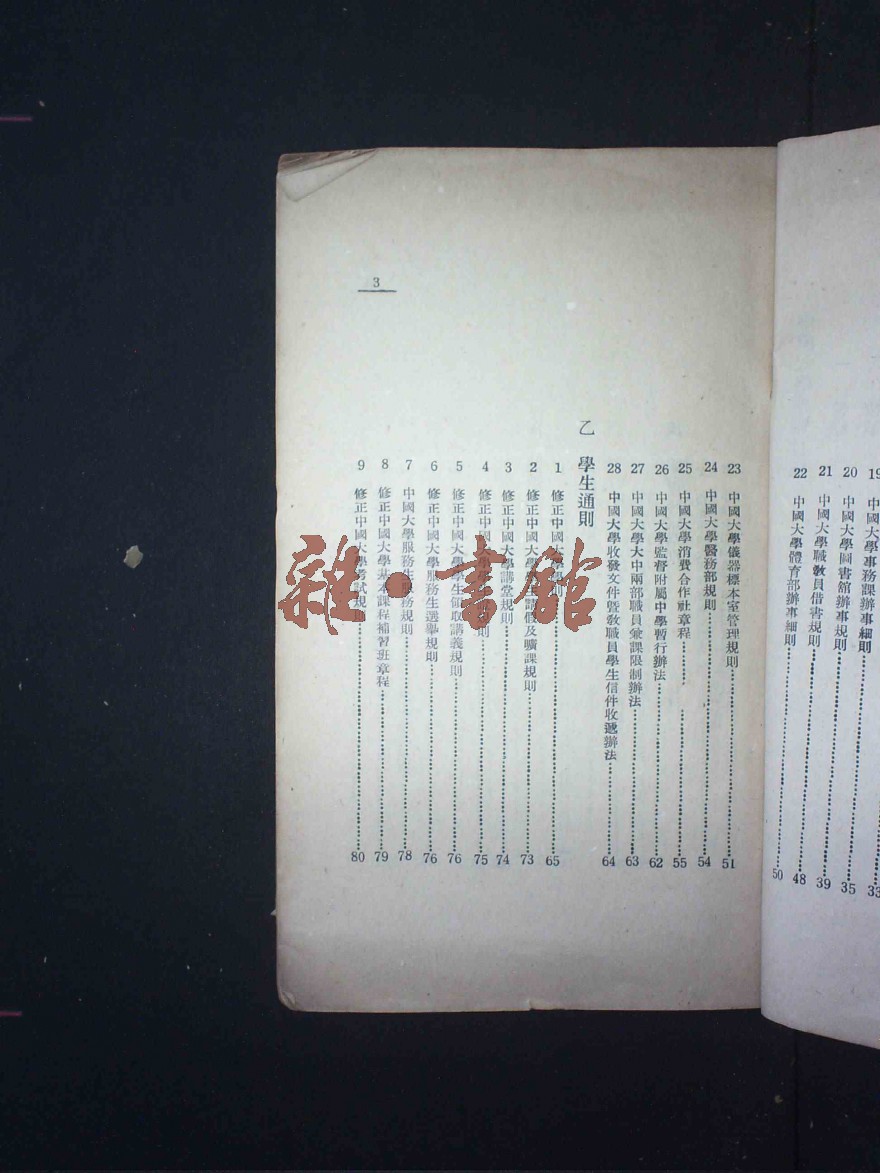 19 中國大學事務課辦事細則 33
20 中國大學圖書館辦事規則 35
21 中國大學職敎員借書規則 39
22 中國大學體育部辦事細則 48
50
3
23 中國大學儀器標本室管理規則 51
24 中國大學醫務部規則 54
25 中國大學消費合作社章程 55
26 中國大學監督附屬中學暫行辦法 62
27 中國大學大中兩部職員兼課限制辦法 63
28 中國大學收發文件暨敎職員學生信件收遞辦法 64
乙 學生通則
1 修正中國大學學則 65
2 修正中國大學學生請假及曠課規則 73
3 修正中國大學講堂規則 74
4 修正中國大學規則 75
5 修正中國大學學生領取講義規則 76
6 修正中國大學服務生選舉規則 76
7 中國大學服務生服務規則 78
8 修正中國大學基本課程補習班章程 79
9 修正中國大學考試規則 80
雜·書館